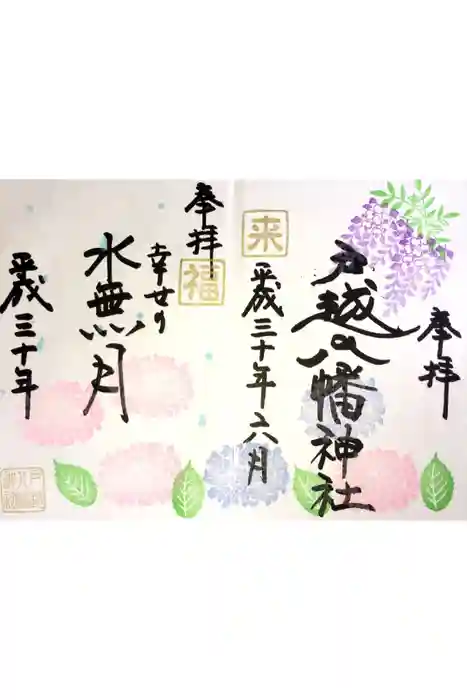 奉拝
戸越八幡神社
平成三十年六月
来
奉拝
福
幸せの
水無月
平成三十年